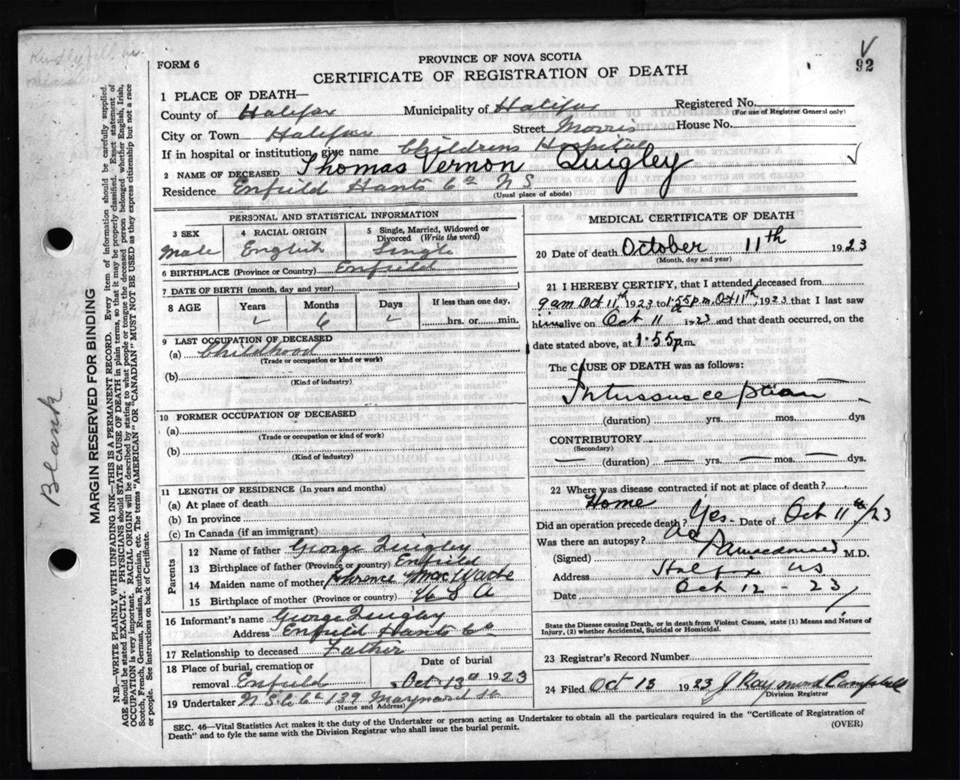 Kindly fill in
V
92
FORM 6
PROVINCE OF NOVA SCOTIA
CERTIFICATE OF REGISTRATION OF DEATH
1 PLACE OF DEATH—
County of Halifax Municipality of Halifax Registered No.
(For use of Registrar General only)
City or Town Halifax Street Morris House No.
If in hospital or institution, give name Childrens Hospital
2 NAME OF DECEASED Thomas Vernon Quigley
Residence Enfield Hants Co NS
(Usual place of abode)
PERSONAL AND STATISTICAL INFORMATION
3 SEX Male
4 RACIAL ORIGIN English
5 Single, Married, Widowed or Divorced (Write the word) Single
6 BIRTHPLACE (Province or Country) Enfield
7 DATE OF BIRTH (month, day and year)
8 AGE Years Months Days If less than one day,
6 hrs. or min.
9 LAST OCCUPATION OF DECEASED
(a) Childhood
(Trade or occupation or kind of work)
(b)
(Kind of industry)
10 FORMER OCCUPATION OF DECEASED
(a)
(Trade or occupation or kind of work)
(b)
(Kind of industry)
11 LENGTH OF RESIDENCE (In years and months)
(a) At place of death
(b) In province
(c) In Canada (if an immigrant)
Parents
12 Name of father George Quigley
13 Birthplace of father (Province or country) Enfield
14 Maiden name of mother Florence
15 Birthplace of mother (Province or country) USA
16 Informant's name George Quigley
Address Enfield Hants Co
17 Relationship to deceased Father
18 Place of burial, cremation or removal Enfield
Date of burial Oct 13 1923
19 Undertaker N S U Co 139 Maynard St
(Name and Address)
MEDICAL CERTIFICATE OF DEATH
20 Date of death October 11th 1923
(Month, day and year)
21 I HEREBY CERTIFY, that I attended deceased from
9 am Oct 11th 1923 to 1.55 p.m. Oct 11th, 1923 that I last saw
him alive on Oct 11 1923 and that death occurred, on the
date stated above, at 1.55 p.m.
The CAUSE OF DEATH was as follows:
Intussusception
(duration) yrs. mos. dys
CONTRIBUTORY
(Secondary)
(duration) yrs. mos. dys.
22 Where was disease contracted if not at place of death?
Home
Did an operation precede death? Yes - Date of Oct 11th/23
Was there an autopsy? No
(Signed) M.D.
Address Halifax NS
Date Oct 12 - 23
State the Disease causing Death, or in death from Violent Causes, state (1) Means and Nature of
Injury, (2) whether Accidental, Suicidal or Homicidal.
23 Registrar's Record Number
24 Filed Oct 13 1923 J Raymond Campbell
Division Registrar
SEC. 46—Vital Statistics Act makes it the duty of the Undertaker or person acting as Undertaker to obtain all the particulars required in the "Certificate of Registration of
Death" and to fyle the same with the Division Registrar who shall issue the burial permit.
(OVER)
Blank
MARGIN RESERVED FOR BINDING
N.B.—WRITE PLAINLY WITH UNFADING INK—THIS IS A PERMANENT RECORD. Every item of information should be carefully supplied.
AGE should be stated EXACTLY. PHYSICIANS should STATE CAUSE OF DEATH in plain terms, so that it may be properly classified. Exact statement of
OCCUPATION is very important. RACIAL ORIGIN will be described by stating to what people or tongue the deceased person belonged whether English, Irish,
Scotch, French, German, Russian, Ruthenian, etc. The terms "AMERICAN" OR "CANADIAN" MUST NOT BE USED as they express citizenship but not a race
or people. See instructions on back of Certificate.